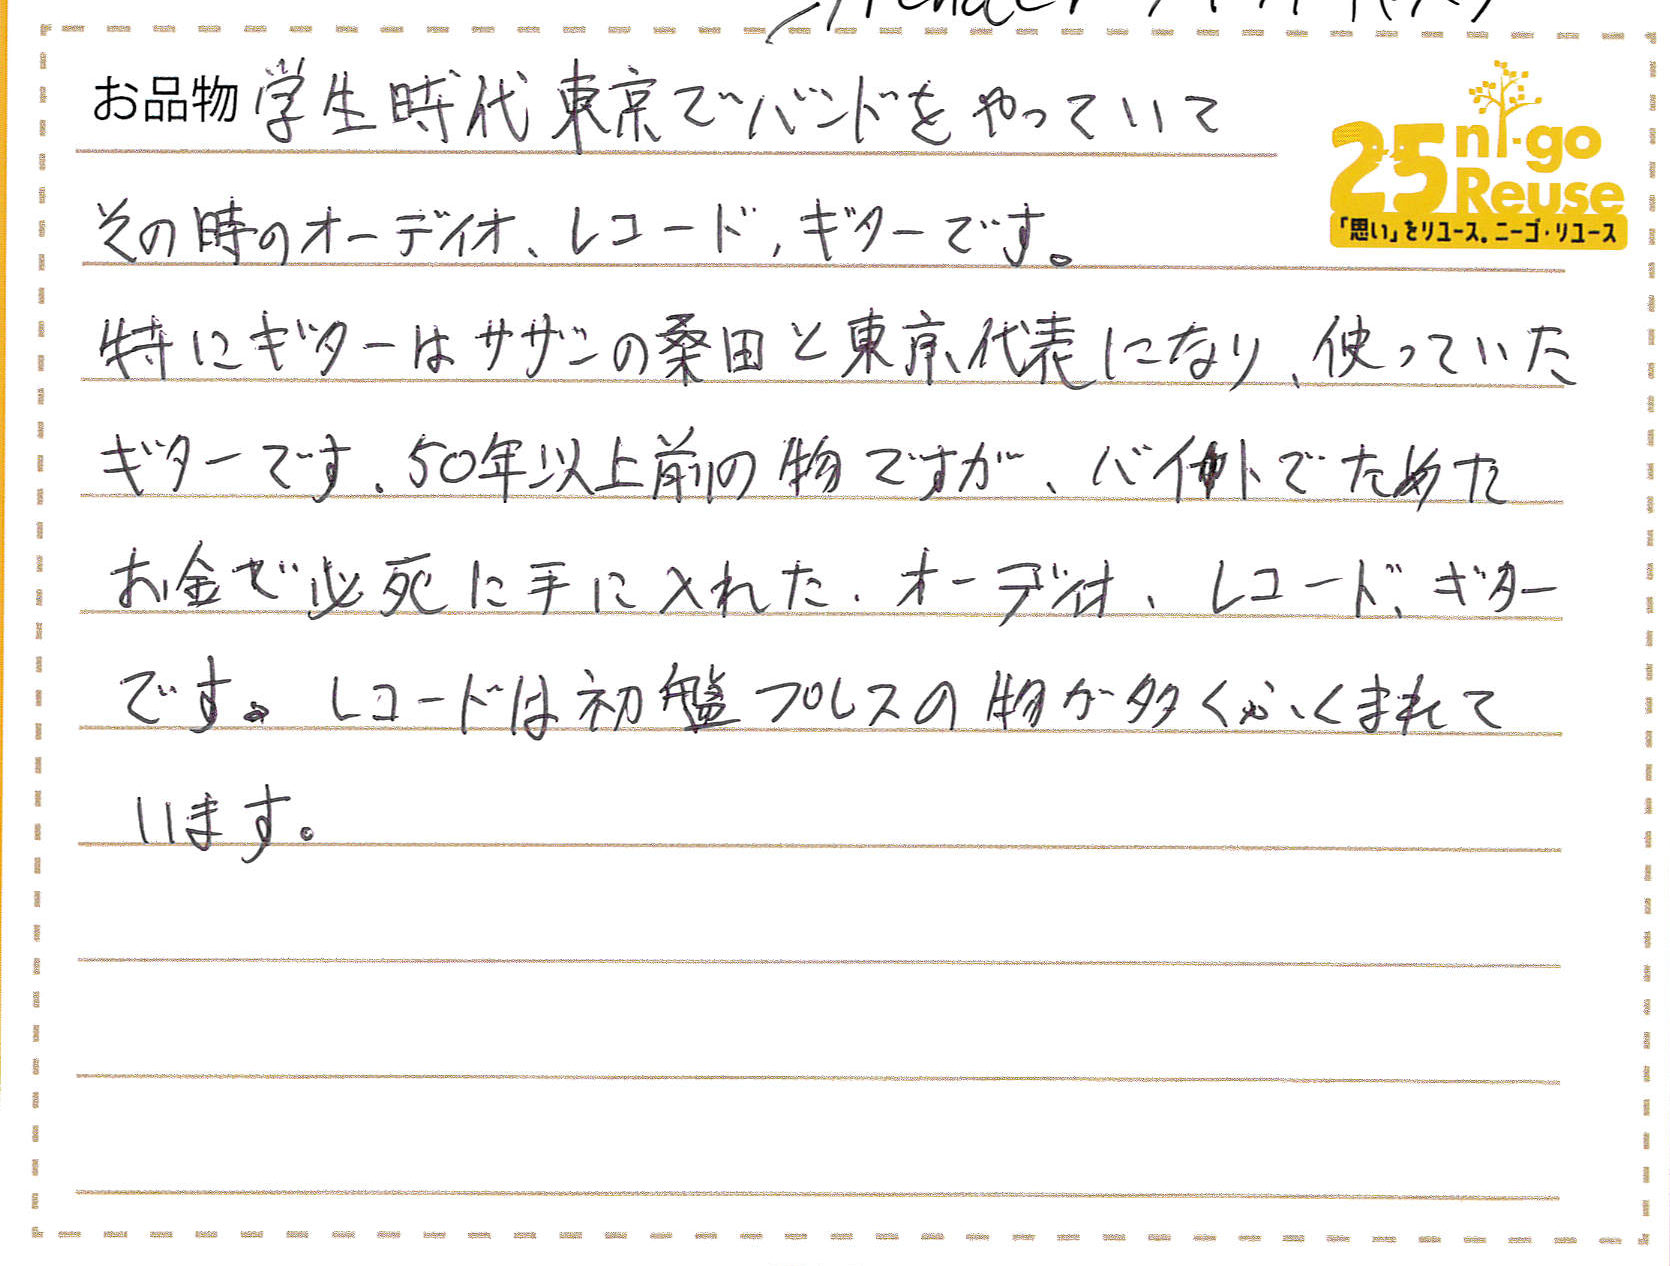 お品物 学生時代 東京でバンドをやっていて
25 ni-go
Reuse
「思い」をリユース。ニーゴ・リユース
その時のオーディオ、レコード、ギターです。
特にギターはサザンの桑田と東京代表になり、使っていた
ギターです、50年以上前の物ですが、バイトでためた
お金で必死に手に入れた、オーディオ、レコード、ギター
です。レコードは初盤プレスの物が多くふくまれて
います。